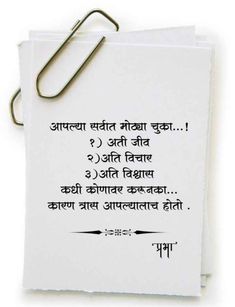 आपल्या सर्वात मोठ्या चुका...!
१) अती जीव
२)अति विचार
३)अति विश्वास
कधी कोणावर करूनका...
कारण त्रास आपल्यालाच होतो .
"प्रभा"